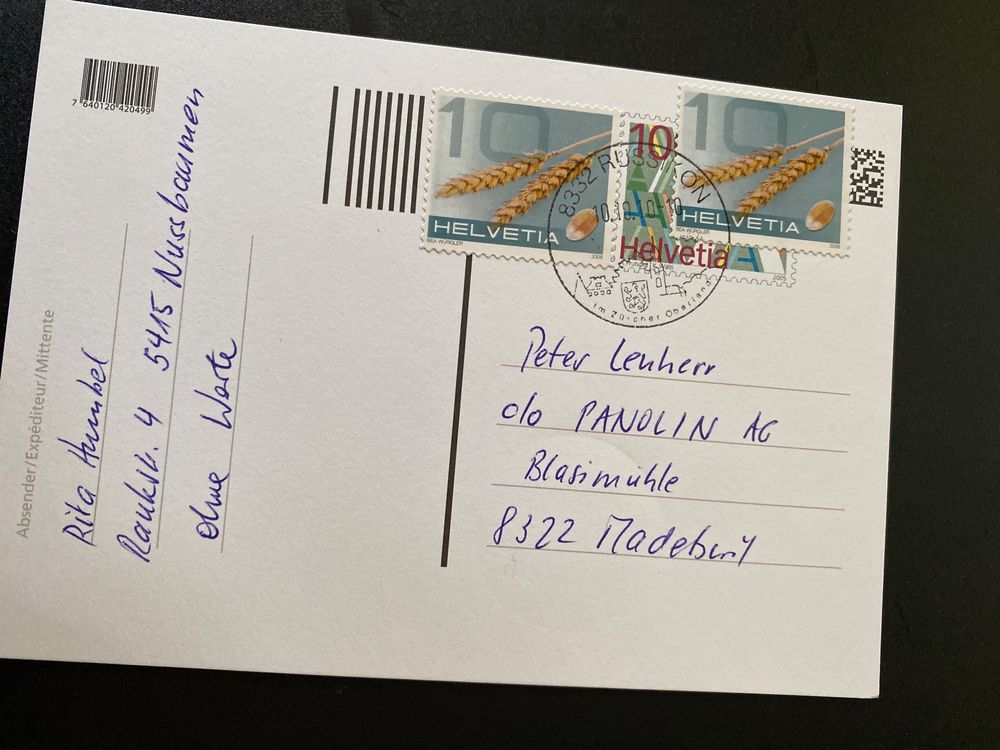 7 640120 420499
Absender/Expéditeur/Mittente
Rita Humbel
5415 Nussbaumen
Ohne Worte
10
HELVETIA
BEA WÜRGLER 2008
10
Helvetia
2005
10
HELVETIA
BEA WÜRGLER 2008
8332 RUSSIKON
10.10.10-10
im Zürcher Oberland
Peter Lenherr
c/o PANOLIN AG
Blasimühle
8322 Madetswil